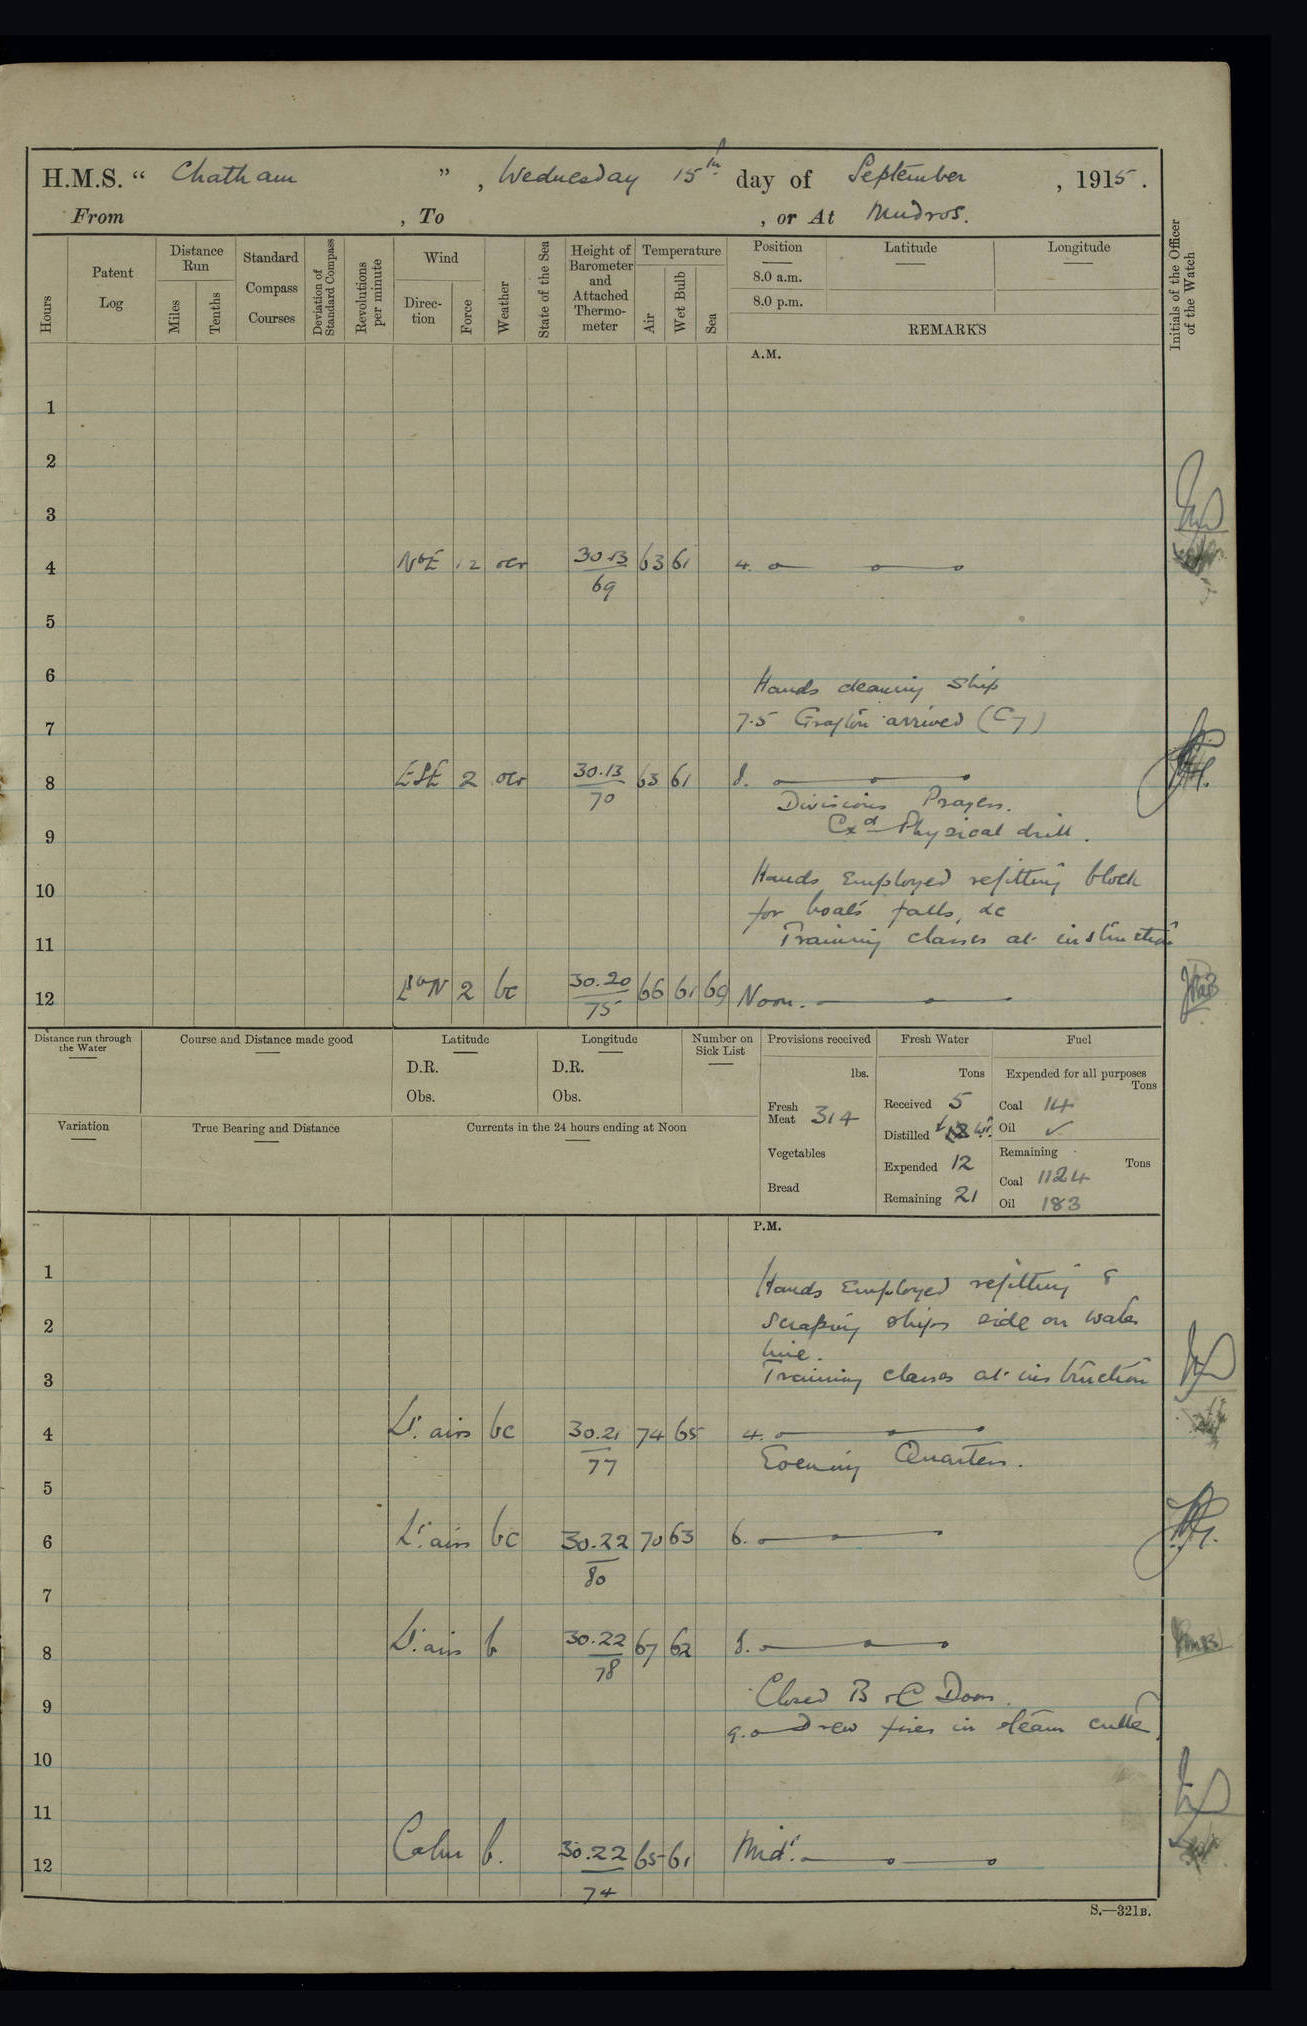 H.M.S. “ Chatham ” , Wednesday 15th day of September , 1915 .
From , To , or At Mudros.
Hours
Patent Log
Distance Run
Miles
Tenths
Standard Compass Courses
Deviation of Standard Compass
Revolutions per minute
Wind
Direc-tion
Force
Weather
State of the Sea
Height of Barometer and Attached Thermo-meter
Temperature
Air
Wet Bulb
Sea
Position
Latitude
Longitude
8.0 a.m.
8.0 p.m.
REMARKS
Initials of the Officer of the Watch
A.M.
1
2
3
4 NbE 12 ocr 30.13 63 61 4.
69
5
6
Hands cleaning Ship
7 7.5 Grafton arrived (C7)
8 ESE 2 ocr 30.13 63 61 8.
70
Divisions Prayers.
9 Exd Physical drill.
10 Hands Employed refitting block
for boats falls, &c
11 Training classes at instruction
12 2 bc 30.20 66 61 69 Noon.
75
Distance run through the Water
Course and Distance made good
Latitude
D.R.
Obs.
Longitude
D.R.
Obs.
Number on Sick List
Provisions received
lbs.
Fresh Meat 314
Vegetables
Bread
Fresh Water
Tons
Received 5
Distilled
Expended 12
Remaining 21
Fuel
Expended for all purposes
Tons
Coal 14
Oil ✓
Remaining
Tons
Coal 1124
Oil 183
Variation
True Bearing and Distance
Currents in the 24 hours ending at Noon
P.M.
1 Hands Employed refitting &
2 scraping ships side on water
line.
3 Training classes at instruction
4 Lt. airs bc 30.21 74 65 4.
77
Evening Quarters.
5
6 Lt. airs bc 30.22 70 63 6.
80
7
8 Lt. airs b 30.22 67 62 8.
78
Closed B & C Doors.
9 9.0 Drew fires in steam cutter.
10
11
12 Calm b. 30.22 65 61 Midt.
74
S.—321B.